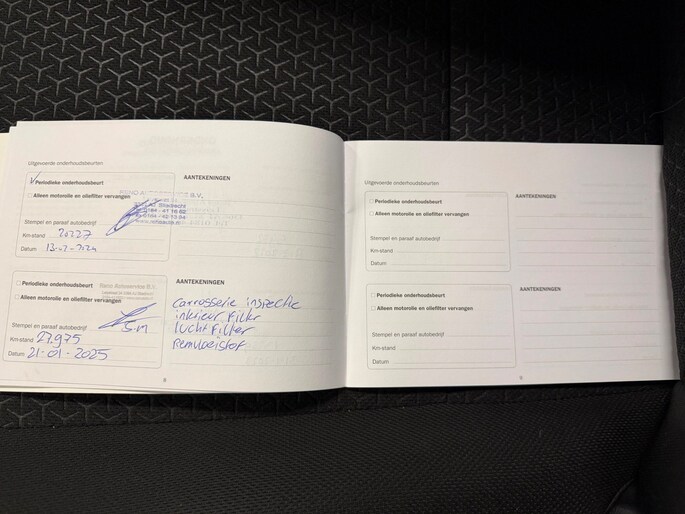 Uitgevoerde onderhoudsbeurten
Periodieke onderhoudsbeurt
Alleen motorolie en oliefilter vervangen
Stempel en paraaf autobedrijf
Km-stand 20227
Datum 13-02-2024
AANTEKENINGEN
B.V.
Sliedrecht
Periodieke onderhoudsbeurt
Alleen motorolie en oliefilter vervangen
Stempel en paraaf autobedrijf
S.M
Km-stand 27.975
Datum 21-01-2025
AANTEKENINGEN
Carrosserie inspectie
interieur filter
lucht filter
Remvloeistof
Uitgevoerde onderhoudsbeurten
Periodieke onderhoudsbeurt
Alleen motorolie en oliefilter vervangen
Stempel en paraaf autobedrijf
Km-stand
Datum
AANTEKENINGEN
Periodieke onderhoudsbeurt
Alleen motorolie en oliefilter vervangen
Stempel en paraaf autobedrijf
Km-stand
Datum
AANTEKENINGEN